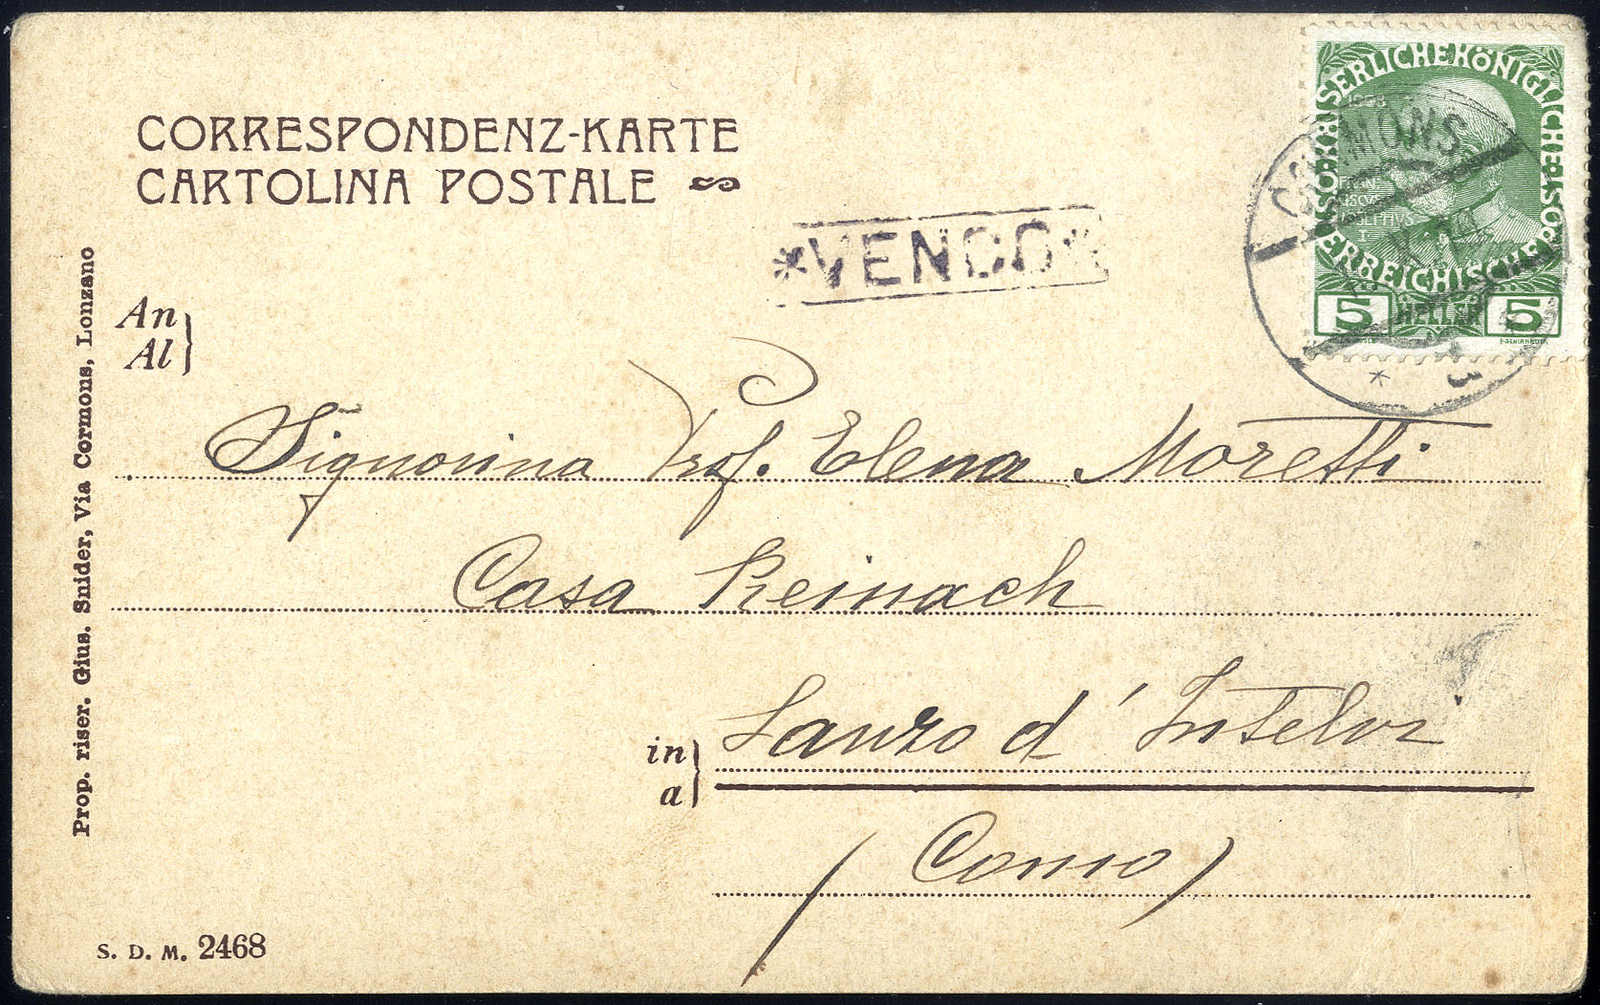 CORRESPONDENZ-KARTE
CARTOLINA POSTALE
*VENCO*
CORMONS
KAISERLICHE KÖNIGLICHE ÖSTERREICHISCHE
5 HELLER 5
An
Al
Signorina Prof. Elena Moretti
Casa Reinach
in
a
Lanzo d'Intelvi
(Como)
Prop. riser. Gius. Snider, Via Cormons, Lonzano
S. D. M. 2468